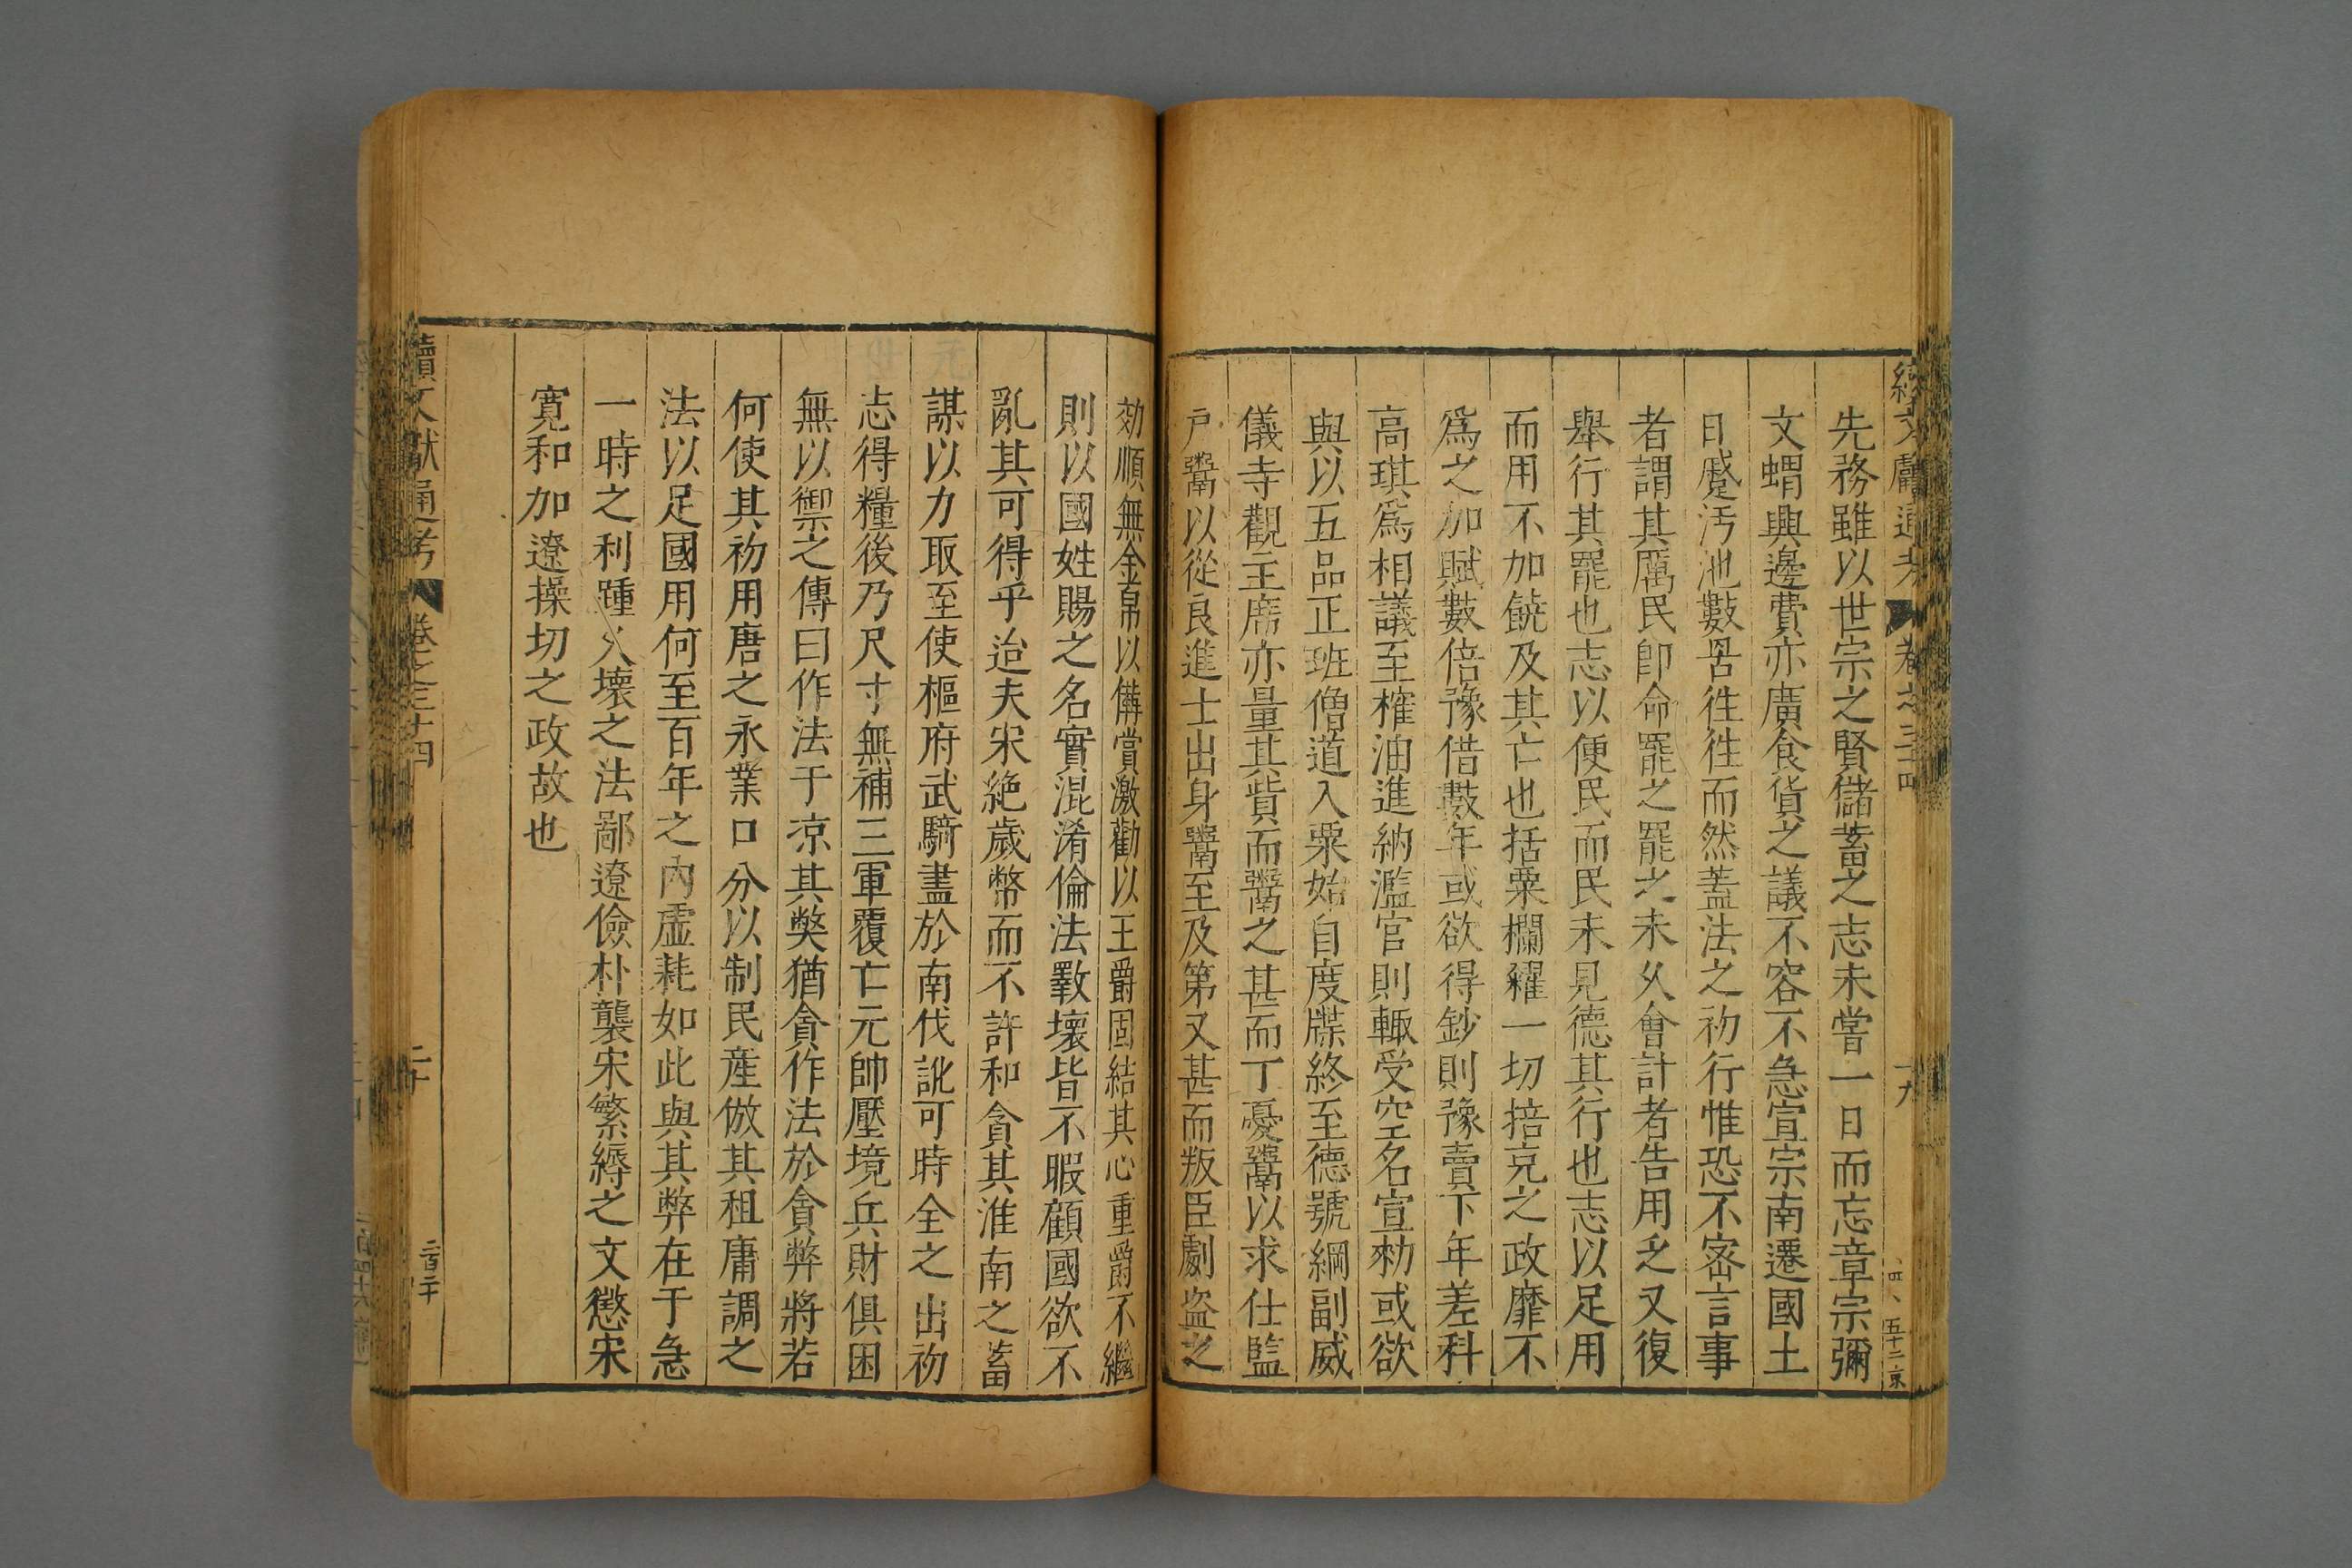 續文獻通考 卷之三十四 十九
先務雖以世宗之賢儲蓄之志未嘗一日而忘章宗彌
文蝟興邊費亦廣食貨之議不容不急宣宗南遷國土
日蹙汚池數罟徃徃而然蓋法之初行惟恐不宻言事
者謂其厲民卽命罷之罷之未乆會計者告用乏又復
舉行其罷也志以便民而民未見德其行也志以足用
而用不加饒及其亡也括粟欄糴一切掊克之政靡不
爲之加賦數倍豫借數年或欲得鈔則豫賣下年差科
高琪爲相議至榷油進納濫官則輙受空名宣勑或欲
與以五品正班僧道入粟始自度牒終至德號綱副威
儀寺觀主席亦量其貲而鬻之甚而丁憂鬻以求仕監
戶鬻以從良進士出身鬻至及第又甚而叛臣劇盗之
効順無金帛以備賞激勸以王爵固結其心重爵不繼
則以國姓賜之名實混淆倫法斁壞皆不暇顧國欲不
亂其可得乎迨夫宋絶歲幣而不許和貪其淮南之蓄
謀以力取至使樞府武騎盡於南伐訛可時全之出初
志得糧後乃尺寸無補三軍覆亡元帥壓境兵財俱困
無以禦之傳曰作法于凉其獘猶貪作法於貪弊將若
何使其初用唐之永業口分以制民産倣其租庸調之
法以足國用何至百年之內虛耗如此與其弊在于急
一時之利踵乆壞之法鄙遼儉朴襲宋繁縟之文懲宋
寛和加遼操切之政故也
續文獻通考 卷之三十四 二十